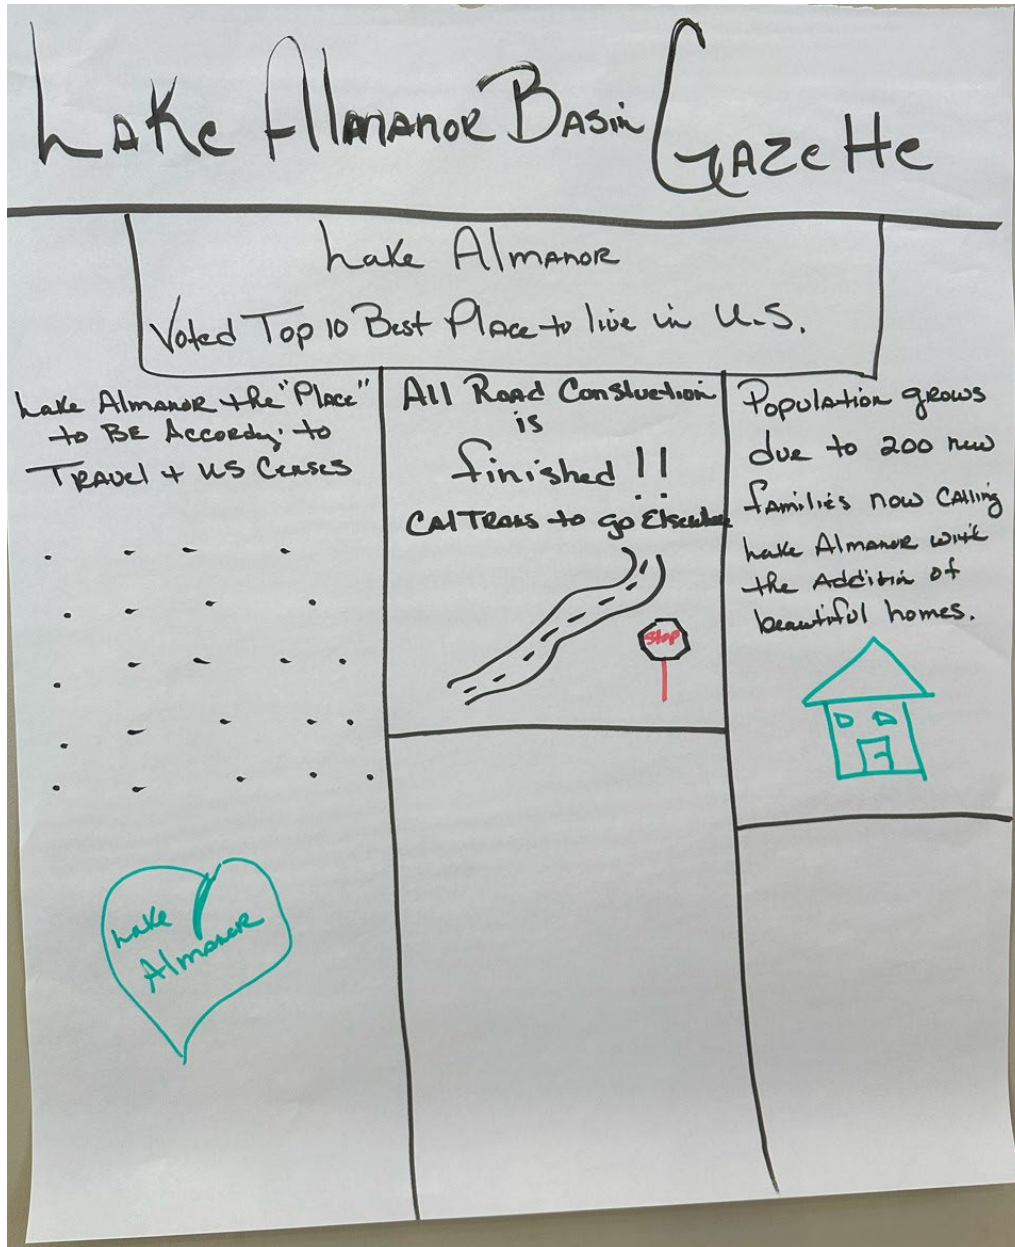 Lake Almanor Basin Gazette
Lake Almanor
Voted Top 10 Best Place to live in U.S.
Lake Almanor the "Place"
to BE According to
TRAVEL + US Censes
Lake
Almanor
All Road Constuction
is
finished!!
CalTrans to go Elsewhere
Stop
Population grows
due to 200 new
families now calling
Lake Almanor with
the Addition of
beautiful homes.